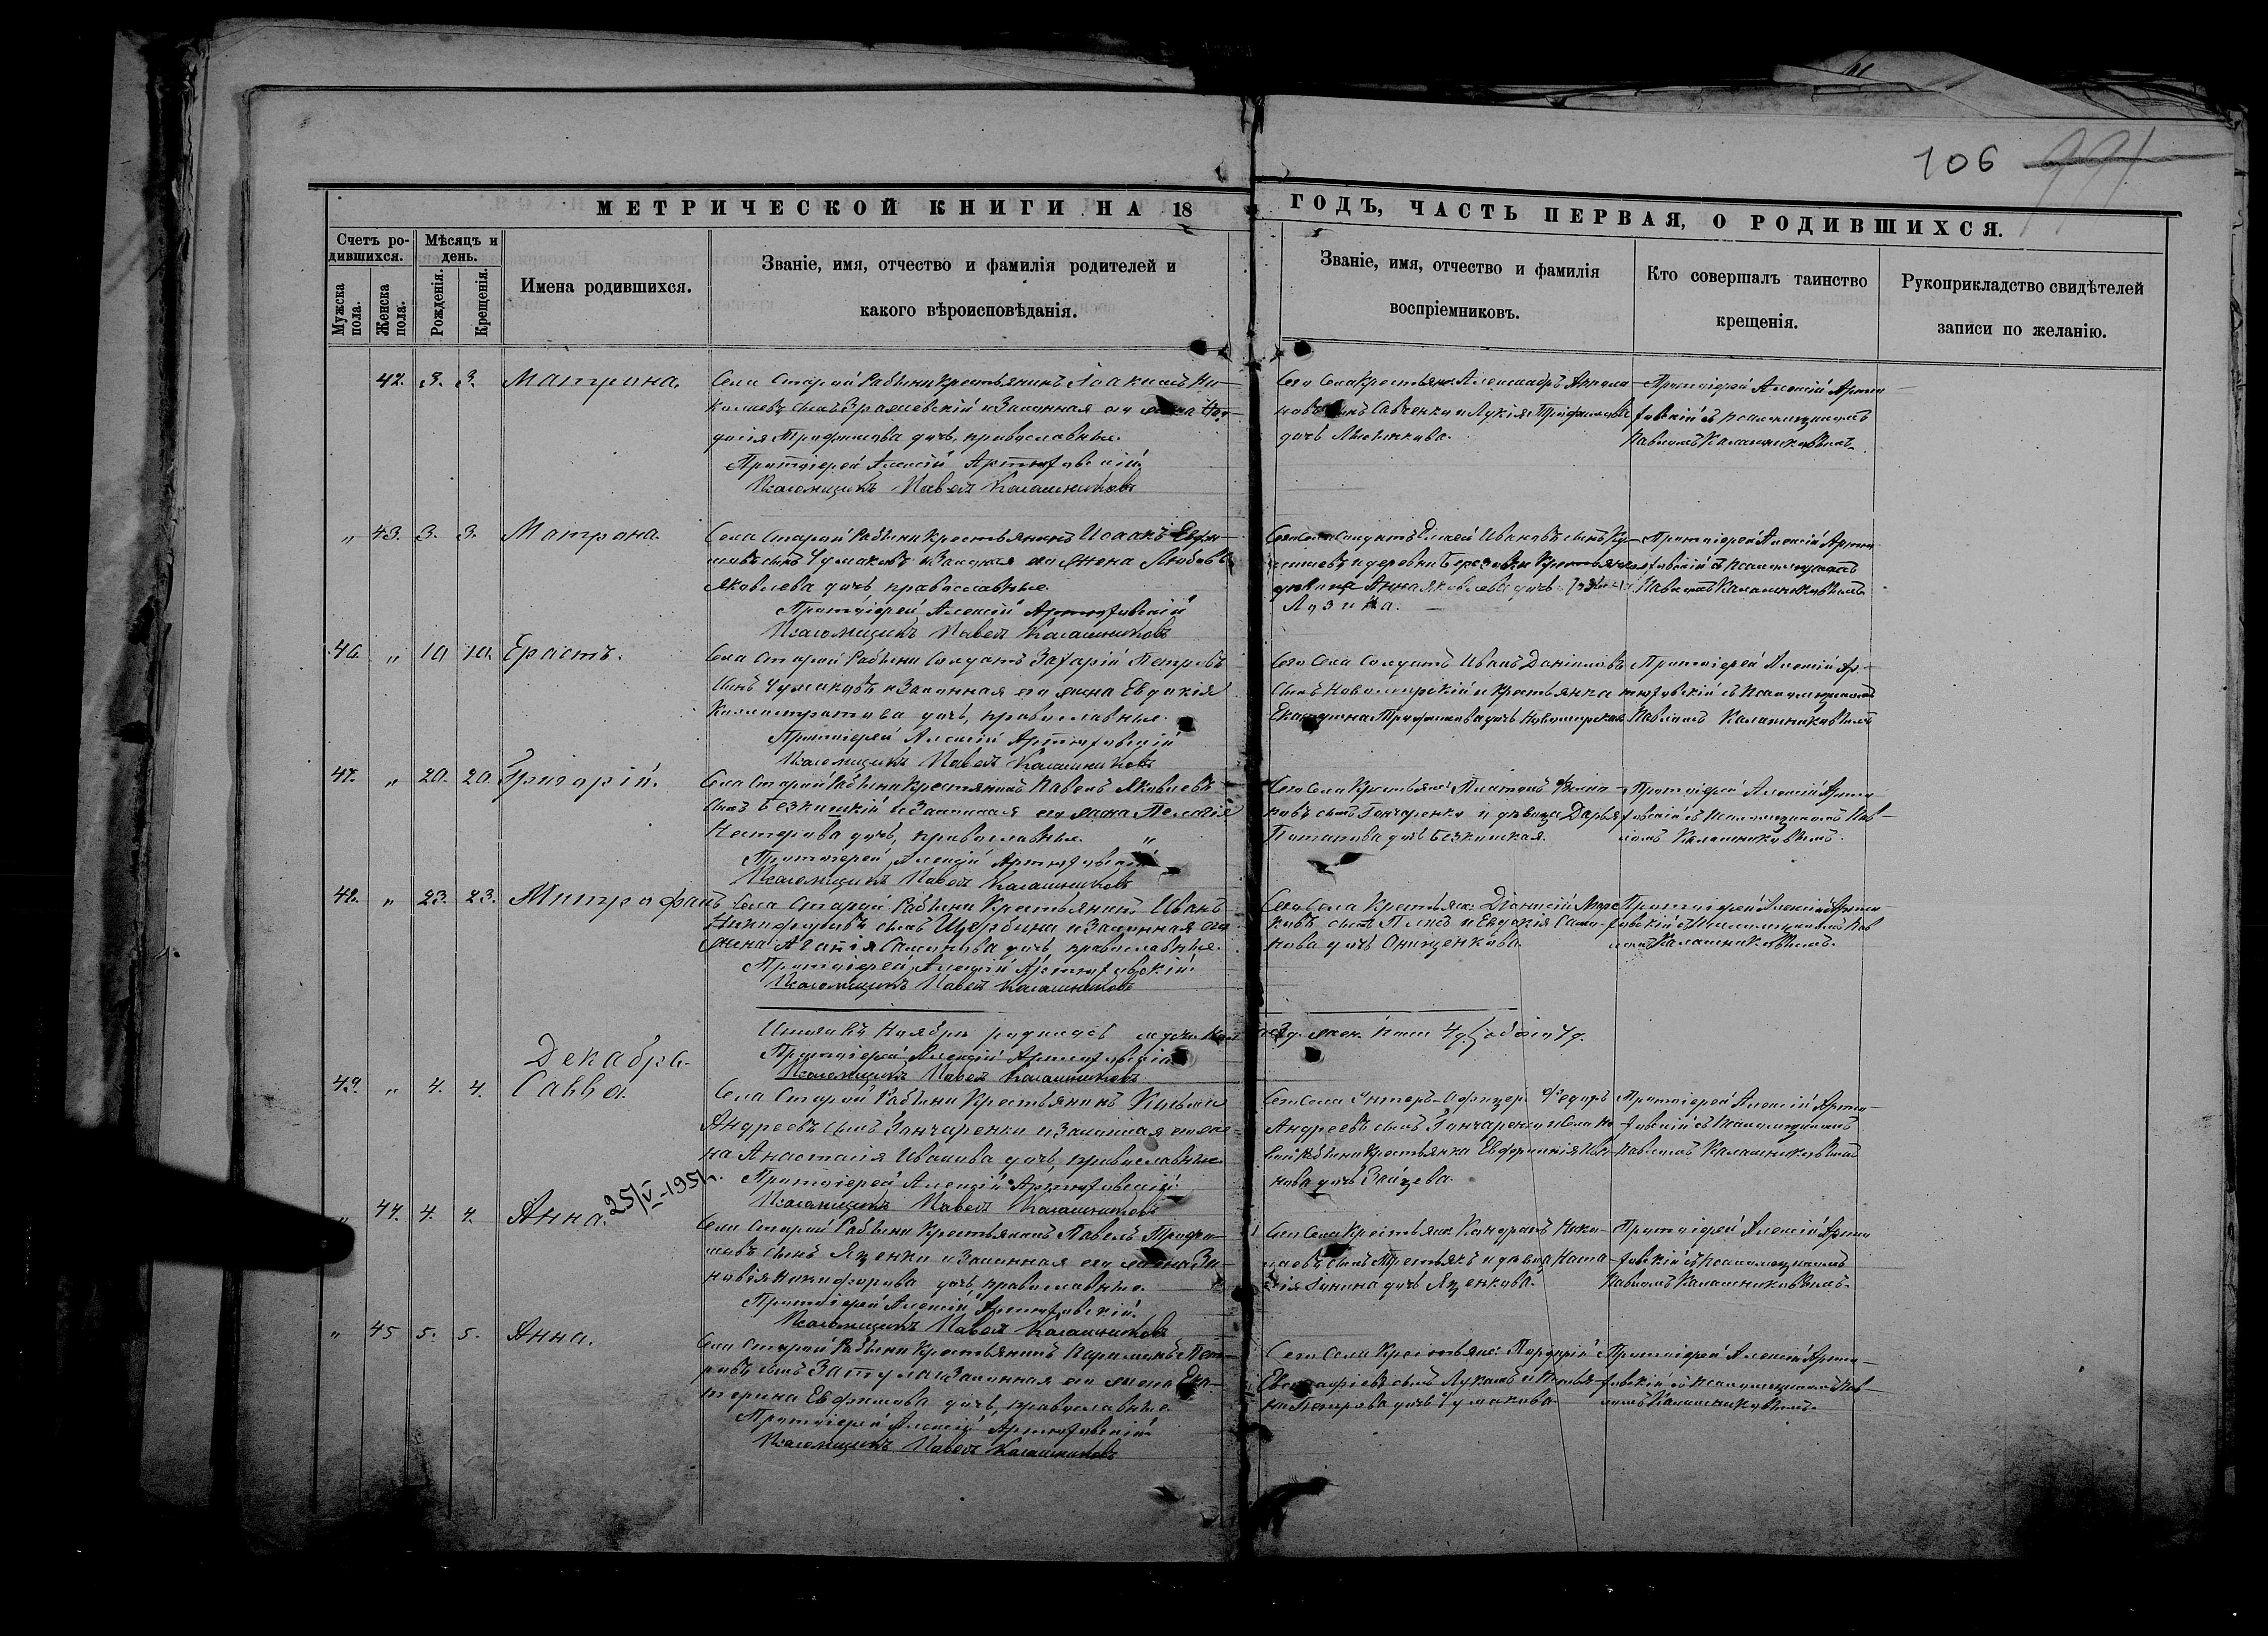 106 991
МЕТРИЧЕСКОЙ КНИГИ НА 18 ГОДЪ, ЧАСТЬ ПЕРВАЯ, О РОДИВШИХСЯ.
Счетъ ро-
дившихся.
Мужска пола.
Женска пола.
Мѣсяцъ и
день.
Рожденія.
Крещенія.
Имена родившихся.
Званіе, имя, отчество и фамилія родителей и
какого вѣроисповѣданія.
Званіе, имя, отчество и фамилія
воспріемниковъ.
Кто совершалъ таинство
крещенія.
Рукоприкладство свидѣтелей
записи по желанію.
42. 3. 3. Матрона.
Села Старой Рябины Крестьянинъ Іоакимъ Ни-
колаевъ сынъ и Законная его жена
Трофимова дочь, православные.
Протоіерей Алексій Артюховскій
Псаломщикъ Павелъ Калашниковъ
Сего Села Крестьян. Александръ
сынъ Савченко и Лукія Трофимова
дочь
Протоіерей Алексій Артю-
ховскій съ псаломщикомъ
Павломъ Калашниковымъ
" 43. 3. 3. Матрона.
Села Старой Рябины Крестьянинъ Исаакъ Ефи-
мовъ сынъ Чумаковъ и Законная его жена Любовь
Яковлева дочь, православные.
Протоіерей Алексій Артюховскій
Псаломщикъ Павелъ Калашниковъ
Сего Села Солдатъ Ивановъ сынъ
и деревни Березовки
дѣвица Анна Яковлева дочь
Протоіерей Алексій Артю-
ховскій съ псаломщикомъ
Павломъ Калашниковымъ
46. " 10 10. Ерастъ.
Села Старой Рябины Солдатъ Захарій Петровъ
сынъ Чумаковъ и Законная его жена Евдокія
Каллистратова дочь, православные.
Протоіерей Алексій Артюховскій
Псаломщикъ Павелъ Калашниковъ
Сего Села Солдатъ Иванъ Даніиловъ
сынъ и Крестьянка
Екатерина Трофимова дочь
Протоіерей Алексій Ар-
тюховскій съ псаломщикомъ
Павломъ Калашниковымъ
47. " 20. 20. Григорій.
Села Старой Рябины Крестьянинъ Павелъ Яковлевъ
сынъ и Законная его жена Пелагія
Нестерова дочь, православные. "
Протоіерей Алексій Артюховскій
Псаломщикъ Павелъ Калашниковъ
Сего Села Крестьян. Платонъ
сынъ Гончаренко и дѣвица Дарья
Потапова дочь
Протоіерей Алексій Артю-
ховскій съ псаломщикомъ Пав-
ломъ Калашниковымъ.
48. " 23. 23. Митрофанъ
Села Старой Рябины Крестьянинъ Иванъ
Никифоровъ сынъ Щербина и Законная его
жена Агапія дочь, православные.
Протоіерей Алексій Артюховскій
Псаломщикъ Павелъ Калашниковъ
Сего Села Крестьян. Діонисій Мар-
ковъ сынъ и Евдокія
дочь Онищенкова.
Протоіерей Алексій Артю-
ховскій съ псаломщикомъ Пав-
ломъ Калашниковымъ.
Итого въ Ноябрѣ родилось муж. жен. пола 4
Протоіерей Алексій Артюховскій
Псаломщикъ Павелъ Калашниковъ
Декабрь.
49. " 4. 4. Савва.
Села Старой Рябины Крестьянинъ
Андреевъ сынъ Гончаренко и Законная его же-
на Анастасія Иванова дочь, православные.
Протоіерей Алексій Артюховскій
Псаломщикъ Павелъ Калашниковъ
Сего Села Унтеръ-Офицеръ Федоръ
Андреевъ сынъ Гончаренко и Села Но-
вой Рябины Крестьянка Евфросинія
дочь Зайцева.
Протоіерей Алексій Артю-
ховскій съ псаломщикомъ
Павломъ Калашниковымъ
" 44. 4. 4. Анна. 25/V-1951г.
Села Старой Рябины Крестьянинъ Павелъ Трофи-
мовъ сынъ Яценко и Законная его жена Зи-
новія Никифорова дочь, православные.
Протоіерей Алексій Артюховскій
Псаломщикъ Павелъ Калашниковъ
Сего Села Крестьян. Кондратъ Нико-
лаевъ сынъ Третьякъ и дѣвица
дочь Яценкова.
Протоіерей Алексій Артю-
ховскій съ псаломщикомъ
Павломъ Калашниковымъ
" 45 5. 5. Анна.
Села Старой Рябины Крестьянинъ Пет-
ровъ сынъ Затула и Законная его жена Ека-
терина Евфимова дочь, православные.
Протоіерей Алексій Артюховскій
Псаломщикъ Павелъ Калашниковъ
Сего Села Крестьян. Порфирій
Евстафіевъ сынъ
Петрова дочь Чумакова.
Протоіерей Алексій Артю-
ховскій съ псаломщикомъ Пав-
ломъ Калашниковымъ